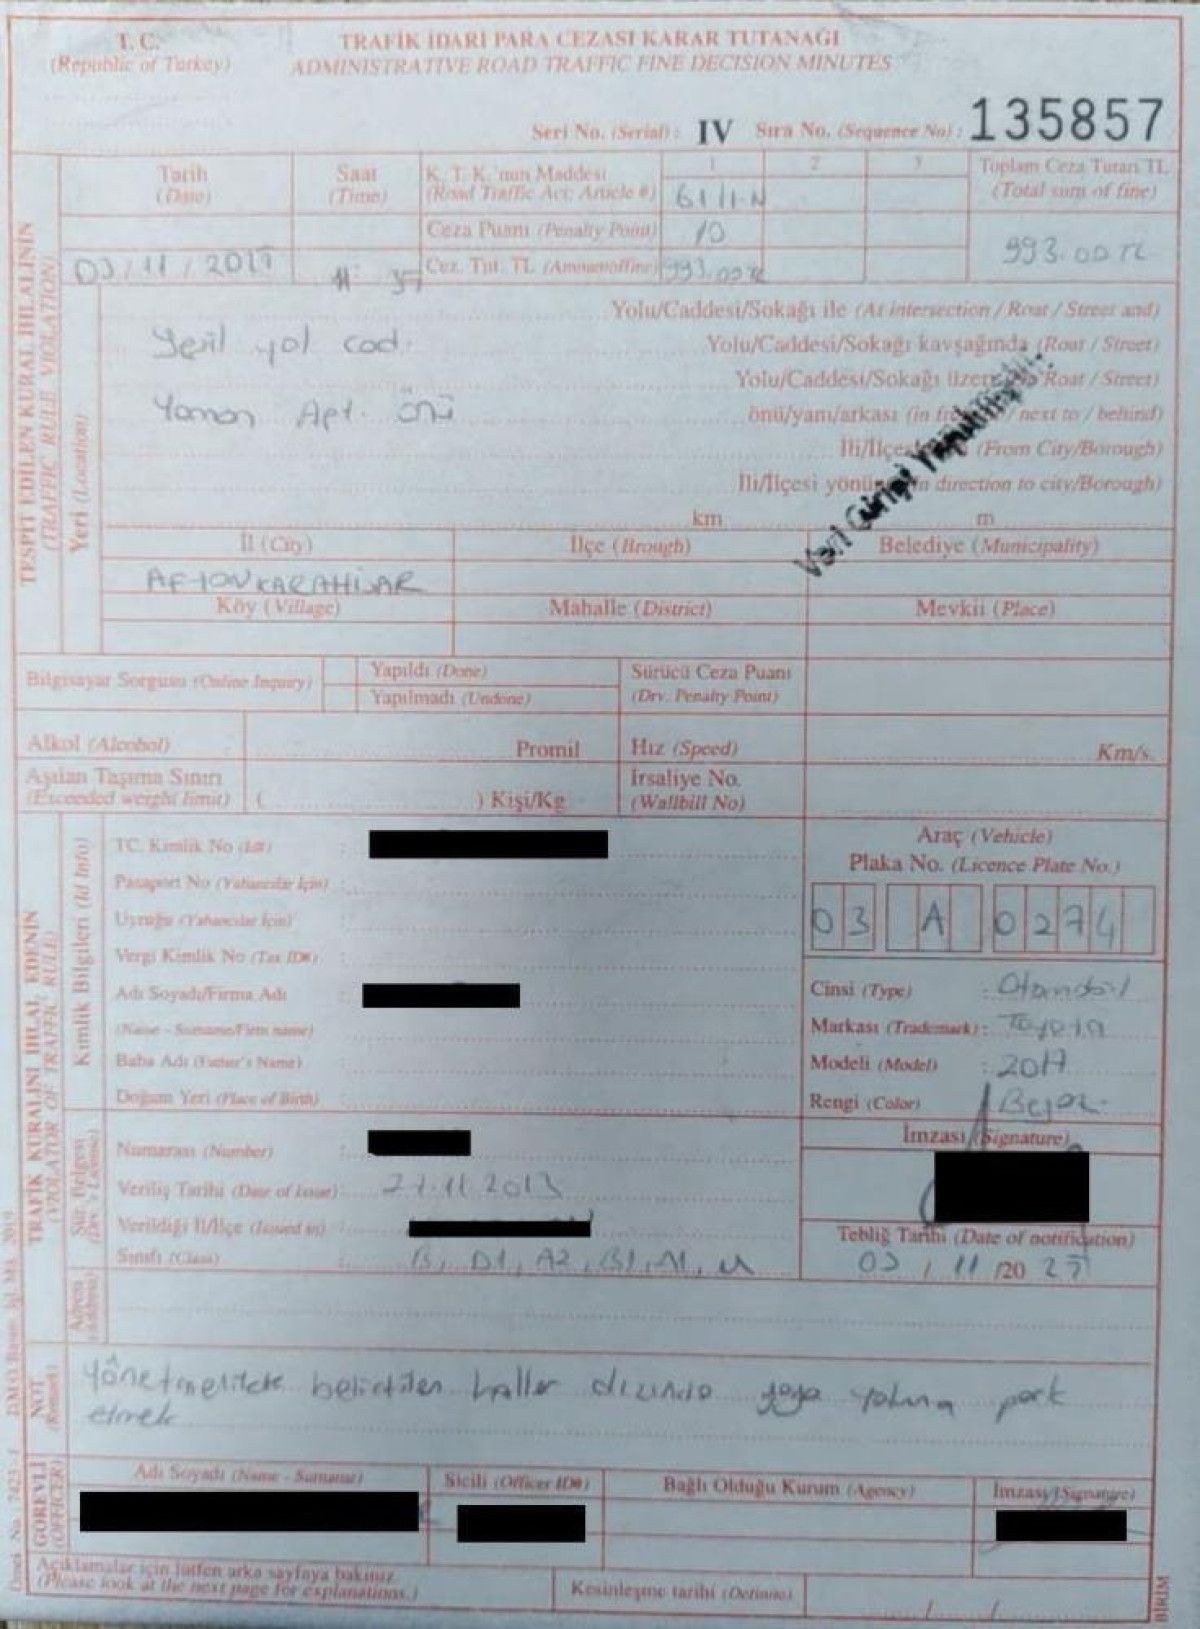 T. C.
(Republic of Turkey)
TRAFİK İDARİ PARA CEZASI KARAR TUTANAĞI
ADMINISTRATIVE ROAD TRAFFIC FINE DECISION MINUTES
Seri No. (Serial) : IV Sıra No. (Sequence No) : 135857
Tarih
(Date)
Saat
(Time)
K. T. K.'nun Maddesi
(Road Traffic Acc: Article #)
1 2 3
61/1-N
Toplam Ceza Tutarı TL
(Total sum of fine)
Ceza Puanı (Penalty Point)
10
993.00 TL
03/11/
11:37
Cez. Tut. TL
993.00 TL
TESPİT EDİLEN KURAL İHLALİNİN
(TRAFFIC RULE VIOLATION)
Yeri (Location)
Yolu/Caddesi/Sokağı ile (At intersection / Roat / Street and)
Yeşil yol cad.
Yolu/Caddesi/Sokağı kavşağında (Roat / Street)
Yolu/Caddesi/Sokağı (Roat / Street)
Yaman Apt. önü
önü/yanı/arkası (in / next to / behind)
(From City/Borough)
İli/İlçesi direction to city/Borough)
km m
Veri Girişi Yapılmıştır.
İl (City) İlçe (Brough) Belediye (Municipality)
AFYONKARAHİSAR
Köy (Village) Mahalle (District) Mevkii (Place)
Bilgisayar Sorgusu (Online Inquiry)
Yapıldı (Done)
Yapılmadı (Undone)
Sürücü Ceza Puanı
(Drv. Penalty Point)
Alkol (Alcohol) Promil Hız (Speed) Km/s.
Aşılan Taşıma Sınırı
(Exceeded weight limit) ( ) Kişi/Kg
İrsaliye No.
(Wallbill No)
TRAFİK KURALINI İHLAL EDENİN
(VIOLATOR OF TRAFFIC RULE)
Kimlik Bilgileri (Id Info)
TC. Kimlik No (Id#) :
Pasaport No (Yabancılar İçin) :
Uyruğu (Yabancılar İçin) :
Vergi Kimlik No (Tax ID#) :
Adı Soyadı/Firma Adı
(Name - Surname/Firm name) :
Baba Adı (Father's Name) :
Doğum Yeri (Place of Birth) :
Araç (Vehicle)
Plaka No. (Licence Plate No.)
03 A 0274
Cinsi (Type) : Otomobil
Markası (Trademark) : Toyota
Modeli (Model) : 2017
Rengi (Color) : Beyaz
Sür. Belgesi
(Drv.'s License)
Numarası (Number) :
Veriliş Tarihi (Date of Issue) : 27.11.2013
Verildiği İl/İlçe (Issued in) :
Sınıfı (Class) : B, D1, A2, B1, M
İmzası (Signature)
Tebliğ Tarihi (Date of notification)
03 / 11 /20
Adresi
(Address)
NOT
(Remark)
Yönetmelikte belirtilen haller dışında yaya yoluna park
etmek
GÖREVLİ
(OFFICER)
Adı Soyadı (Name - Surname) Sicili (Officer ID#) Bağlı Olduğu Kurum (Agency) İmzası (Signature)
Açıklamalar için lütfen arka sayfaya bakınız.
(Please look at the next page for explanations.)
Kesinleşme tarihi (Definite)
/ /
BİRİM